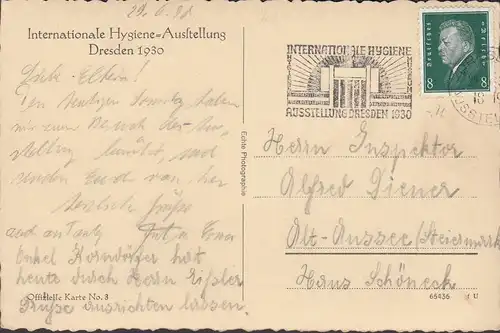 29.6.30
Internationale Hygiene-Ausstellung
Dresden 1930
Liebe Eltern!
Den heutigen Sonntag haben
wir zum Besuch der Au-
stellung benützt, und
senden Euch von hier
herzliche Grüße
und
Onkel Korndörfer hat
heute durch Herrn Eißler
Grüße ausrichten lassen.
Offizielle Karte No. 3
Echte Photographie
INTERNATIONALE HYGIENE
MUSEUM
AUSSTELLUNG DRESDEN 1930
Deutsches Reich
8 8
Herrn Inspektor
Alfred Diener
Alt-Aussee (Steiermark
Haus Schöneck
65436